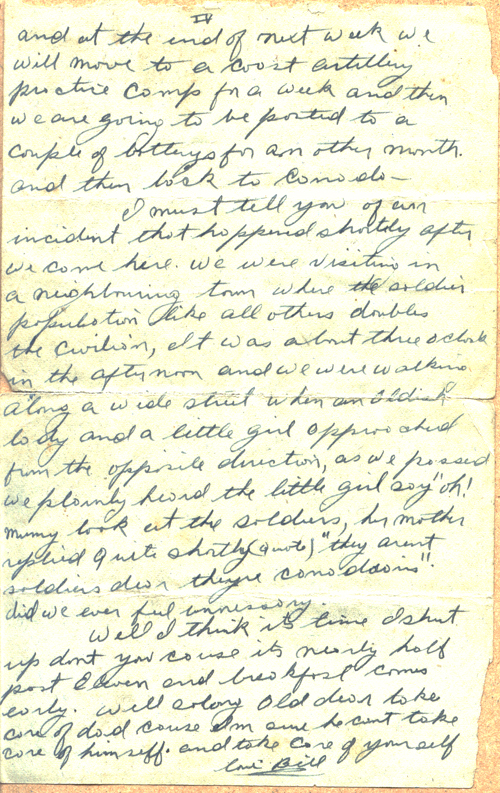 IV
and at the end of next week we
will move to a coast artillery
practice camp for a week and then
we are going to be posted to a
couple of batterys for an other month.
and then back to Canada—
I must tell you of an
incident that happend shortly after
we came here. we were visiting in
a neighbouring town where the soldier
population like all others doubles
the civilian, It was about three o clock
in the afternoon and we were walking
along a wide street when an oldish
lady and a little girl approached
from the opposite direction, as we passed
we plainly heard the little girl say "oh!
mumy look at the soldiers, her mother
replied quite shortly (quote) "they arent
soldiers dear theyre canadians".
did we ever feel unnessary.
Well I think its time I shut
up dont you cause its nearly half
past eleven and breakfast comes
early. Well solong Old dear take
care of dad cause Im sure he cant take
care of himself. and take care of yourself
love Bill